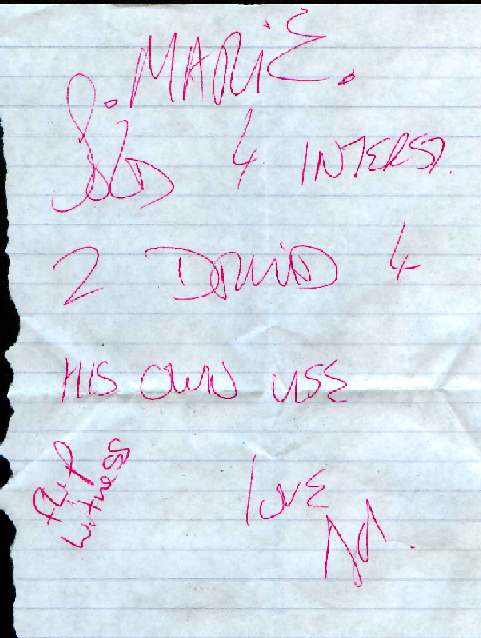 MARIE.
SOLD 4 INTEREST
2 DAVID 4
HIS OWN USE
love
witness